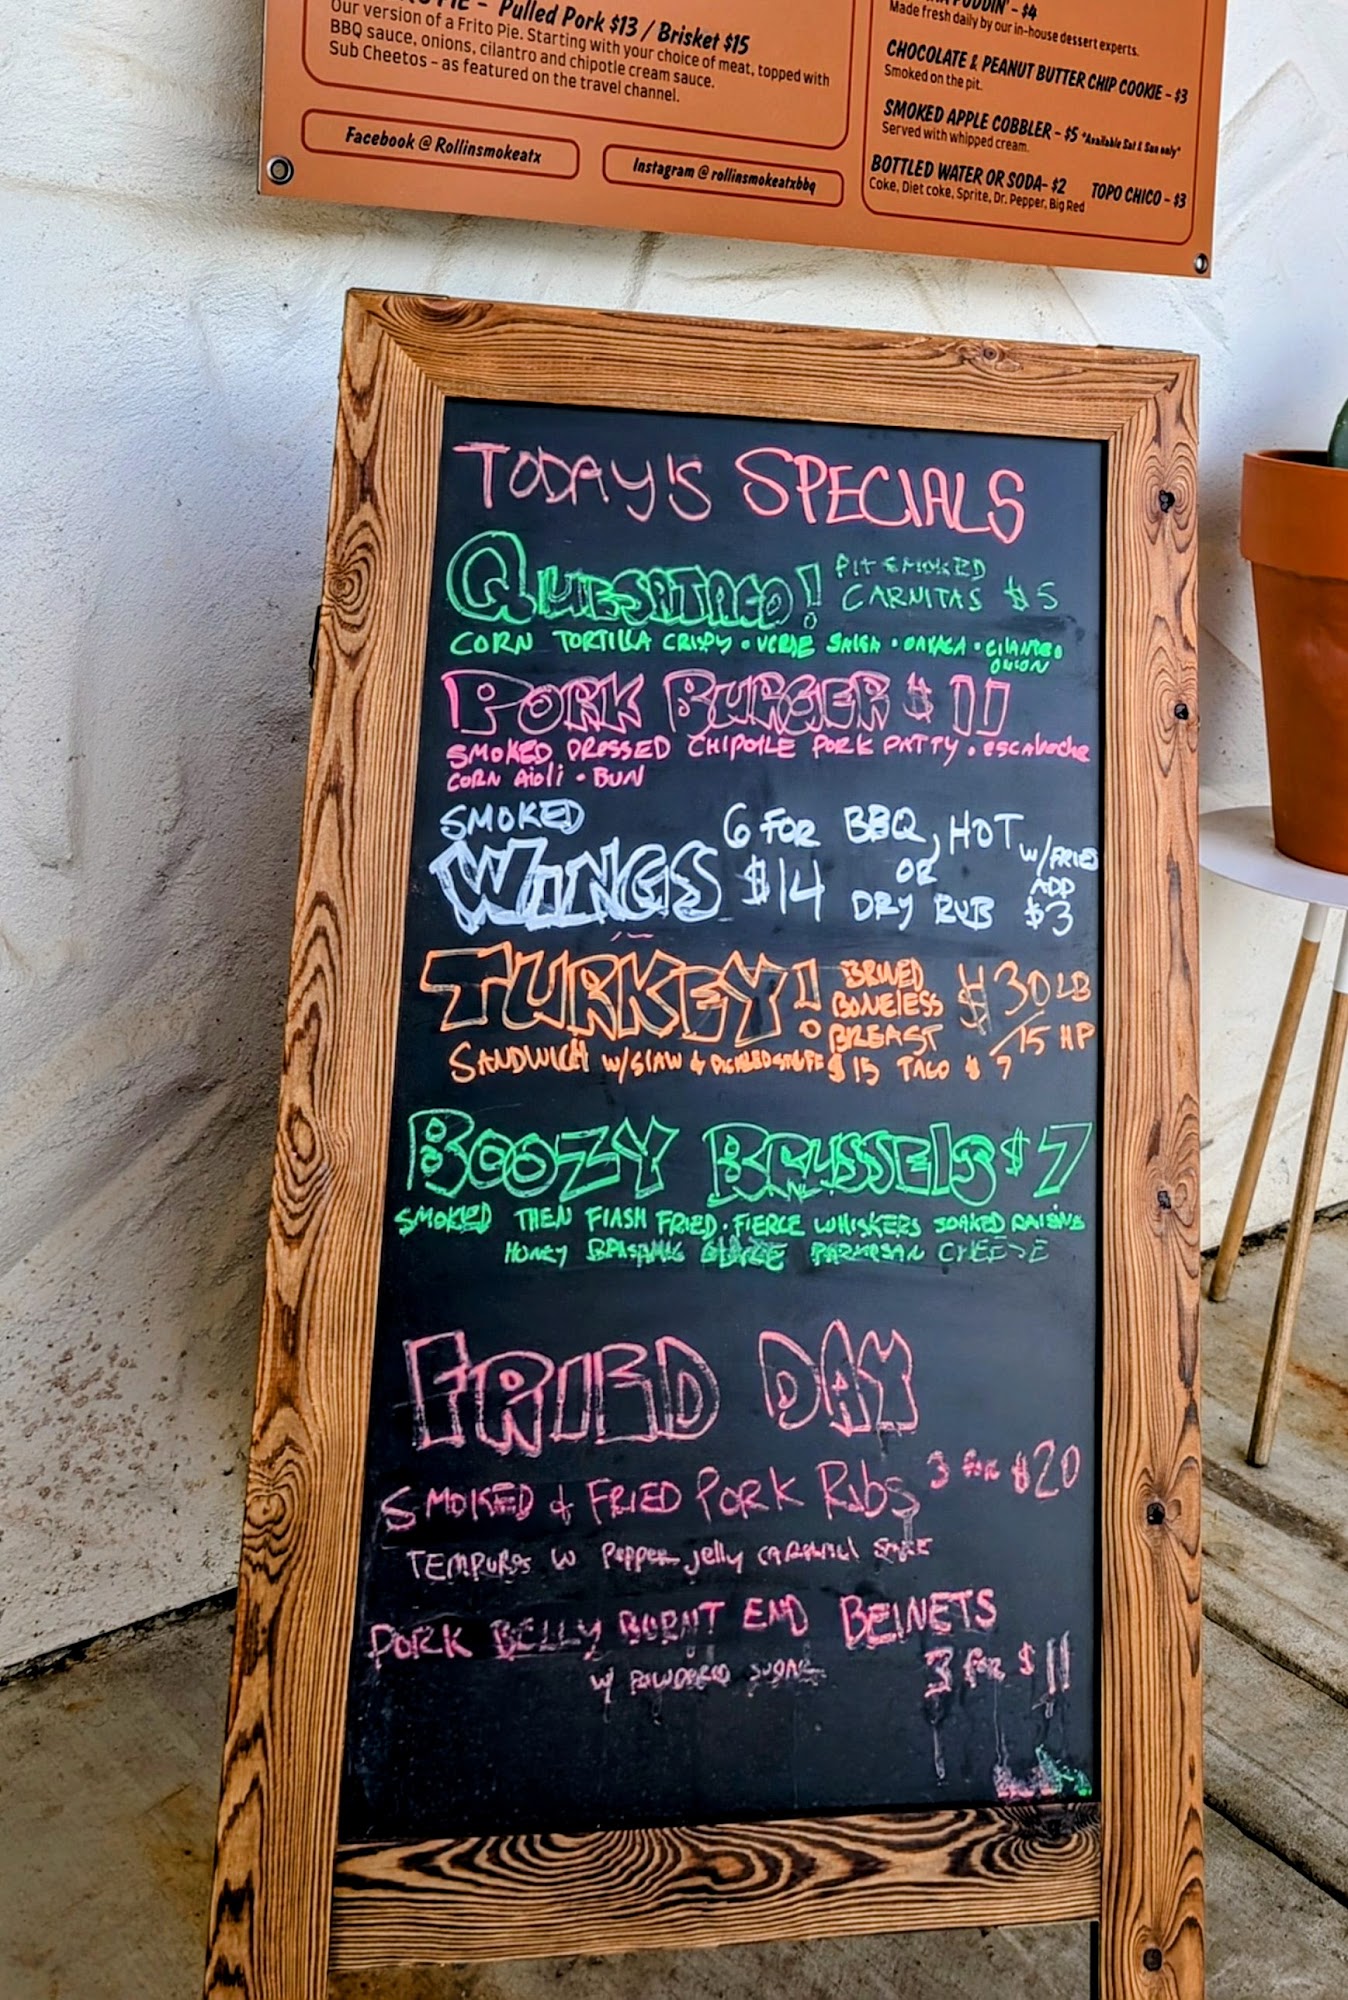 PIE - Pulled Pork $13 / Brisket $15
Our version of a Frito Pie. Starting with your choice of meat, topped with
BBQ sauce, onions, cilantro and chipotle cream sauce.
Sub Cheetos - as featured on the travel channel.
Facebook @ Rollinsmokeatx
Instagram @ rollinsmokeatxbbq
PUDDIN' - $4
Made fresh daily by our in-house dessert experts.
CHOCOLATE & PEANUT BUTTER CHIP COOKIE - $3
Smoked on the pit.
SMOKED APPLE COBBLER - $5 *Available Sat & Sun only*
Served with whipped cream.
BOTTLED WATER OR SODA- $2 TOPO CHICO - $3
Coke, Diet coke, Sprite, Dr. Pepper, Big Red
TODAY'S SPECIALS
QUESATACO! PIT SMOKED
CARNITAS $5
CORN TORTILLA CRISPY • VERDE SALSA • OAXACA • CILANTRO
ONION
PORK BURGER $11
SMOKED DRESSED CHIPOTLE PORK PATTY • escabeche
CORN AIOLI • BUN
SMOKED
WINGS 6 FOR $14 BBQ, HOT
OR
DRY RUB
W/FRIES
ADD
$3
TURKEY! BRINED
BONELESS
BREAST
$30 LB
/15 HP
SANDWICH W/SLAW & PICKLED STUFF $15 TACO $7
BOOZY BRUSSELS $7
SMOKED THEN FLASH FRIED • FIERCE WHISKERS SOAKED RAISINS
HONEY BALSAMIC GLAZE PARMESAN CHEESE
FRIED DAY
SMOKED & FRIED PORK RIBS 3 FOR $20
TEMPURA W Pepper jelly CARAMEL
PORK BELLY BURNT END BEINETS
W/ POWDERED SUGAR 3 FOR $11